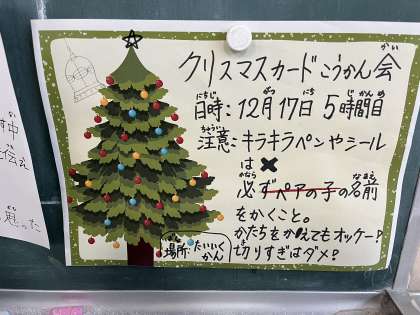 クリスマスカードこうかん会
日時：12月17日 5時間目
注意：キラキラペンやシール
は✖
必ずペアの子の名前
をかくこと。
かたちをかえてもオッケー？
切りすぎはダメ？
場所：たいいく
かん
伝え
思った